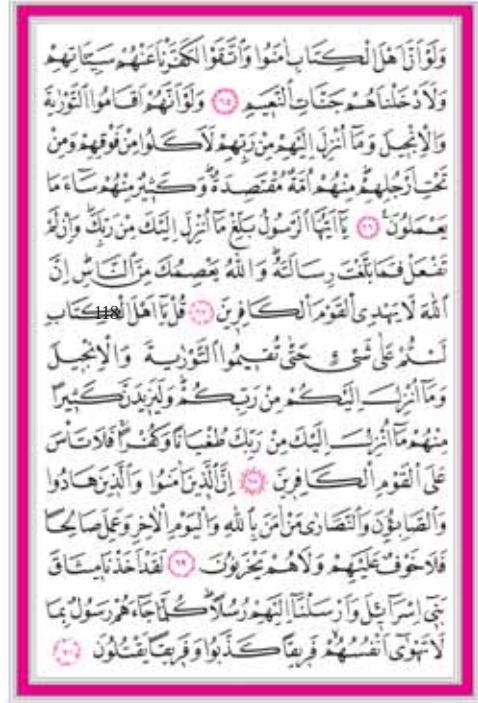 وَلَوْ اَنَّ اَهْلَ الْكِتَابِ اٰمَنُوا وَاتَّقَوْا لَكَفَّرْنَا عَنْهُمْ سَيِّـَٔاتِهِمْ
وَلَاَدْخَلْنَاهُمْ جَنَّاتِ النَّعِيمِ ﴿٦٥﴾ وَلَوْ اَنَّهُمْ اَقَامُوا التَّوْرٰيةَ
وَالْاِنْجِيلَ وَمَٓا اُنْزِلَ اِلَيْهِمْ مِنْ رَبِّهِمْ لَاَكَلُوا مِنْ فَوْقِهِمْ وَمِنْ
تَحْتِ اَرْجُلِهِمْ مِنْهُمْ اُمَّةٌ مُقْتَصِدَةٌ وَكَثِيرٌ مِنْهُمْ سَٓاءَ مَا
يَعْمَلُونَ ﴿٦٦﴾ يَٓا اَيُّهَا الرَّسُولُ بَلِّغْ مَٓا اُنْزِلَ اِلَيْكَ مِنْ رَبِّكَ وَاِنْ لَمْ
تَفْعَلْ فَمَا بَلَّغْتَ رِسَالَتَهُ وَاللّٰهُ يَعْصِمُكَ مِنَ النَّاسِ اِنَّ
اللّٰهَ لَا يَهْدِي الْقَوْمَ الْكَافِرِينَ ﴿٦٧﴾ قُلْ يَٓا اَهْلَ الْكِتَابِ 118
لَسْتُمْ عَلٰى شَيْءٍ حَتّٰى تُقِيمُوا التَّوْرٰيةَ وَالْاِنْجِيلَ
وَمَٓا اُنْزِلَ اِلَيْكُمْ مِنْ رَبِّكُمْ وَلَيَزِيدَنَّ كَثِيرًا
مِنْهُمْ مَٓا اُنْزِلَ اِلَيْكَ مِنْ رَبِّكَ طُغْيَانًا وَكُفْرًا فَلَا تَأْسَ
عَلَى الْقَوْمِ الْكَافِرِينَ ﴿٦٨﴾ اِنَّ الَّذِينَ اٰمَنُوا وَالَّذِينَ هَادُوا
وَالصَّابِؤُنَ وَالنَّصَارٰى مَنْ اٰمَنَ بِاللّٰهِ وَالْيَوْمِ الْاٰخِرِ وَعَمِلَ صَالِحًا
فَلَا خَوْفٌ عَلَيْهِمْ وَلَا هُمْ يَحْزَنُونَ ﴿٦٩﴾ لَقَدْ اَخَذْنَا مِيثَاقَ
بَنِٓي اِسْرَٓائِلَ وَاَرْسَلْنَٓا اِلَيْهِمْ رُسُلًا كُلَّمَا جَٓاءَهُمْ رَسُولٌ بِمَا
لَا تَهْوٰٓى اَنْفُسُهُمْ فَرِيقًا كَذَّبُوا وَفَرِيقًا يَقْتُلُونَ ﴿٧٠﴾